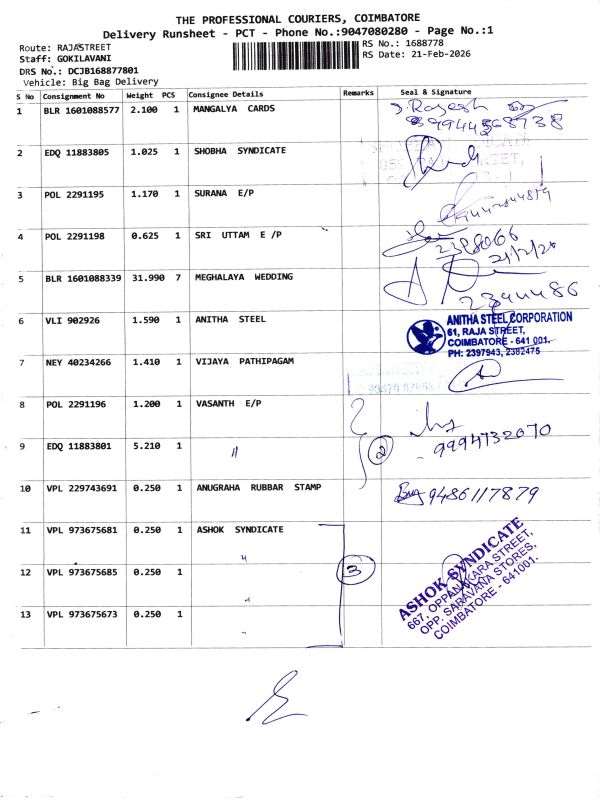 THE PROFESSIONAL COURIERS, COIMBATORE
Delivery Runsheet - PCT - Phone No.:9047080280 - Page No.:1
Route: RAJASTREET
RS No.: 1688778
Staff: GOKILAVANI
RS Date: 21-Feb-2026
DRS No.: DCJB168877801
Vehicle: Big Bag Delivery
S No Consignment No Weight PCS Consignee Details Remarks Seal & Signature
1 BLR 1601088577 2.100 1 MANGALYA CARDS
2 EDQ 11883805 1.025 1 SHOBHA SYNDICATE
3 POL 2291195 1.170 1 SURANA E/P
4 POL 2291198 0.625 1 SRI UTTAM E /P
2398066
21/2/26
5 BLR 1601088339 31.990 7 MEGHALAYA WEDDING
2394486
6 VLI 902926 1.590 1 ANITHA STEEL
ANITHA STEEL CORPORATION
61, RAJA STREET,
COIMBATORE - 641 001.
PH: 2397943, 2382475
7 NEY 40234266 1.410 1 VIJAYA PATHIPAGAM
8 POL 2291196 1.200 1 VASANTH E/P
9994732070
9 EDQ 11883801 5.210 1 〃 2
10 VPL 229743691 0.250 1 ANUGRAHA RUBBAR STAMP
9486117879
11 VPL 973675681 0.250 1 ASHOK SYNDICATE
〃
12 VPL 973675685 0.250 1 3
〃
13 VPL 973675673 0.250 1 〃
ASHOK SYNDICATE
667, OPPANAKARA STREET,
OPP. SARAVANA STORES,
COIMBATORE - 641001.